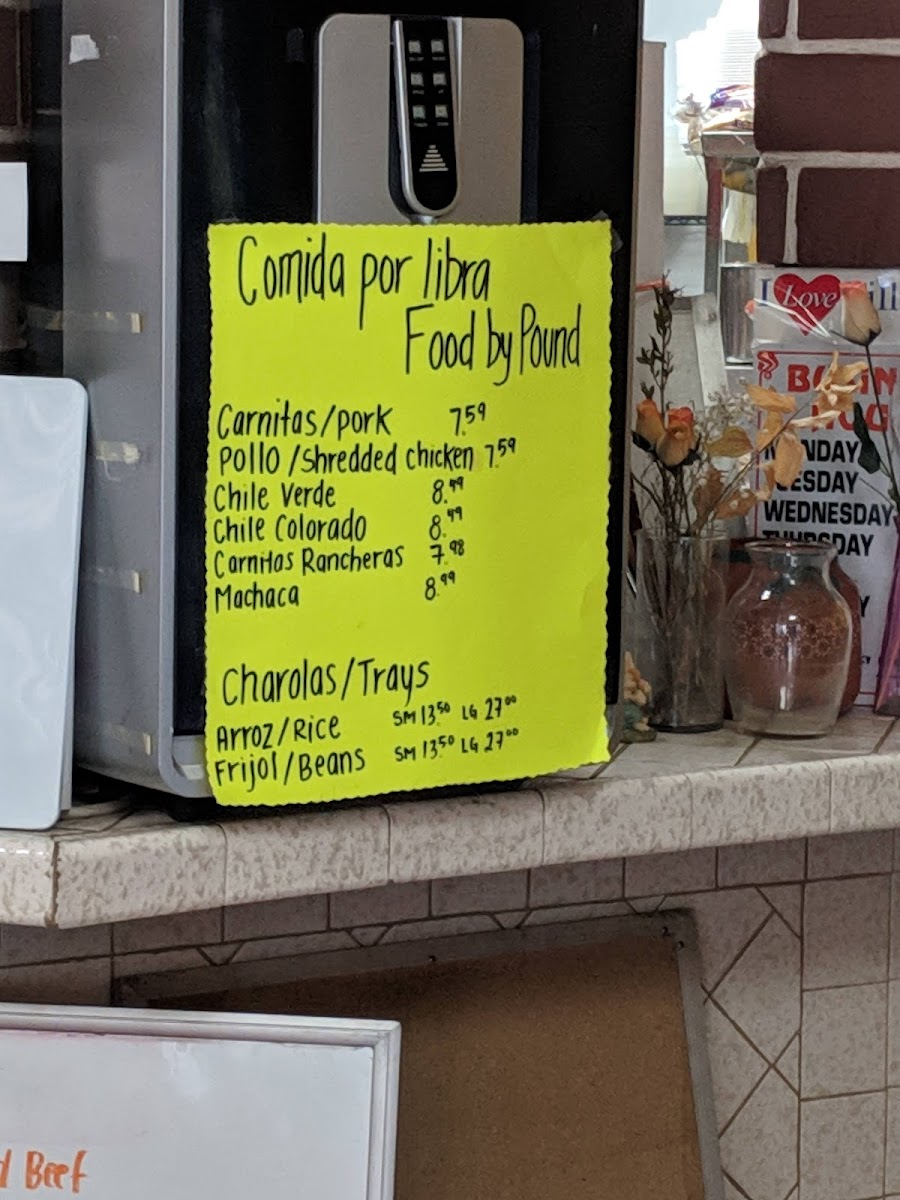 Comida por libra
Food by Pound
Carnitas/pork 7.59
Pollo/Shredded chicken 7.59
Chile Verde 8.49
Chile Colorado 8.49
Carnitas Rancheras 7.98
Machaca 8.99
Charolas/Trays
Arroz/Rice SM 13.50 LG 27.00
Frijol/Beans SM 13.50 LG 27.00
I Love
MONDAY
TUESDAY
WEDNESDAY
THURSDAY
Beef